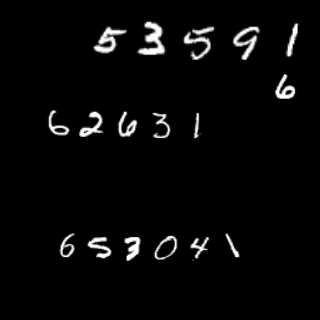 53591
6
62631
653041